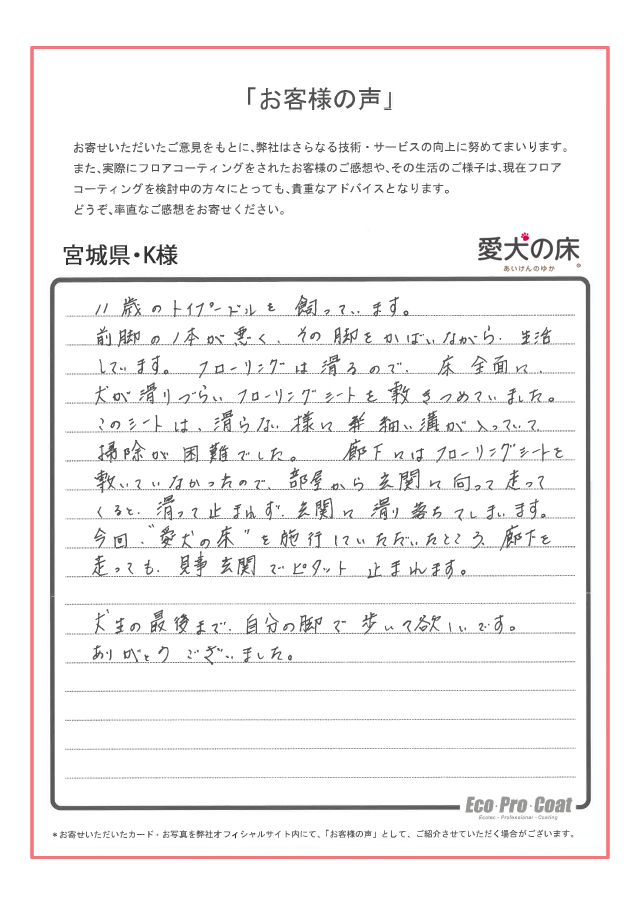 「お客様の声」
お寄せいただいたご意見をもとに、弊社はさらなる技術・サービスの向上に努めてまいります。
また、実際にフロアコーティングをされたお客様のご感想や、その生活のご様子は、現在フロア
コーティングを検討中の方々にとっても、貴重なアドバイスとなります。
どうぞ、率直なご感想をお寄せください。
宮城県・K様
愛犬の床
あいけんのゆか
11歳のトイプードルを飼っています。
前脚の1本が悪く、その脚をかばいながら、生活
しています。フローリングは滑るので、床全面に、
犬が滑りづらいフローリングシートを敷きつめていました。
このシートは、滑らない様に細い溝が入っていて
掃除が困難でした。 廊下にはフローリングシートを
敷いていなかったので、部屋から玄関に向って走って
くると、滑って止まれず、玄関に滑り落ちてしまいます。
今回、"愛犬の床"を施行していただいたところ、廊下を
走っても、見事玄関でピタット止まれます。
犬生の最後まで、自分の脚で歩いて欲しいです。
ありがとうございました。
Eco・Pro・Coat
Ecotec・Professioner・Coating
*お寄せいただいたカード・お写真を弊社オフィシャルサイト内にて、「お客様の声」として、ご紹介させていただく場合がございます。